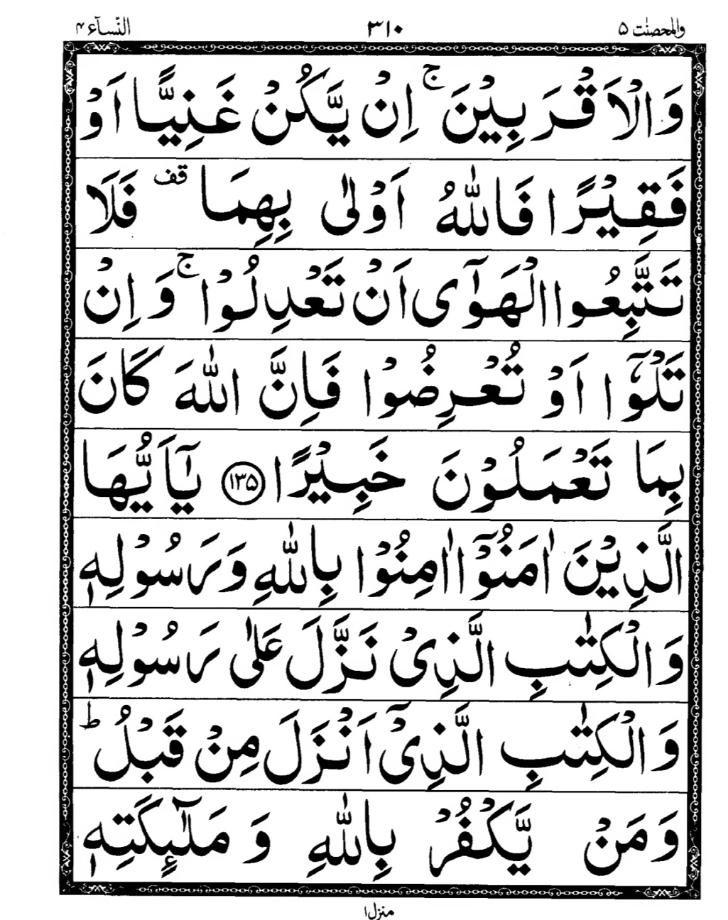 والمحصنٰت ۵ ۳۱۰ النّسآء ۴
وَالْاَقْرَبِيْنَ ۚ اِنْ يَّكُنْ غَنِيًّا اَوْ
فَقِيْرًا فَاللّٰهُ اَوْلٰى بِهِمَا قف فَلَا
تَتَّبِعُوا الْهَوٰٓى اَنْ تَعْدِلُوْا ۚ وَاِنْ
تَلْوٗٓا اَوْ تُعْرِضُوْا فَاِنَّ اللّٰهَ كَانَ
بِمَا تَعْمَلُوْنَ خَبِيْرًا ۝۱۳۵ يٰٓاَيُّهَا
الَّذِيْنَ اٰمَنُوْٓا اٰمِنُوْا بِاللّٰهِ وَرَسُوْلِهٖ
وَالْكِتٰبِ الَّذِيْ نَزَّلَ عَلٰى رَسُوْلِهٖ
وَالْكِتٰبِ الَّذِيْٓ اَنْزَلَ مِنْ قَبْلُ ؕ
وَمَنْ يَّكْفُرْ بِاللّٰهِ وَ مَلٰٓئِكَتِهٖ
منزل۱